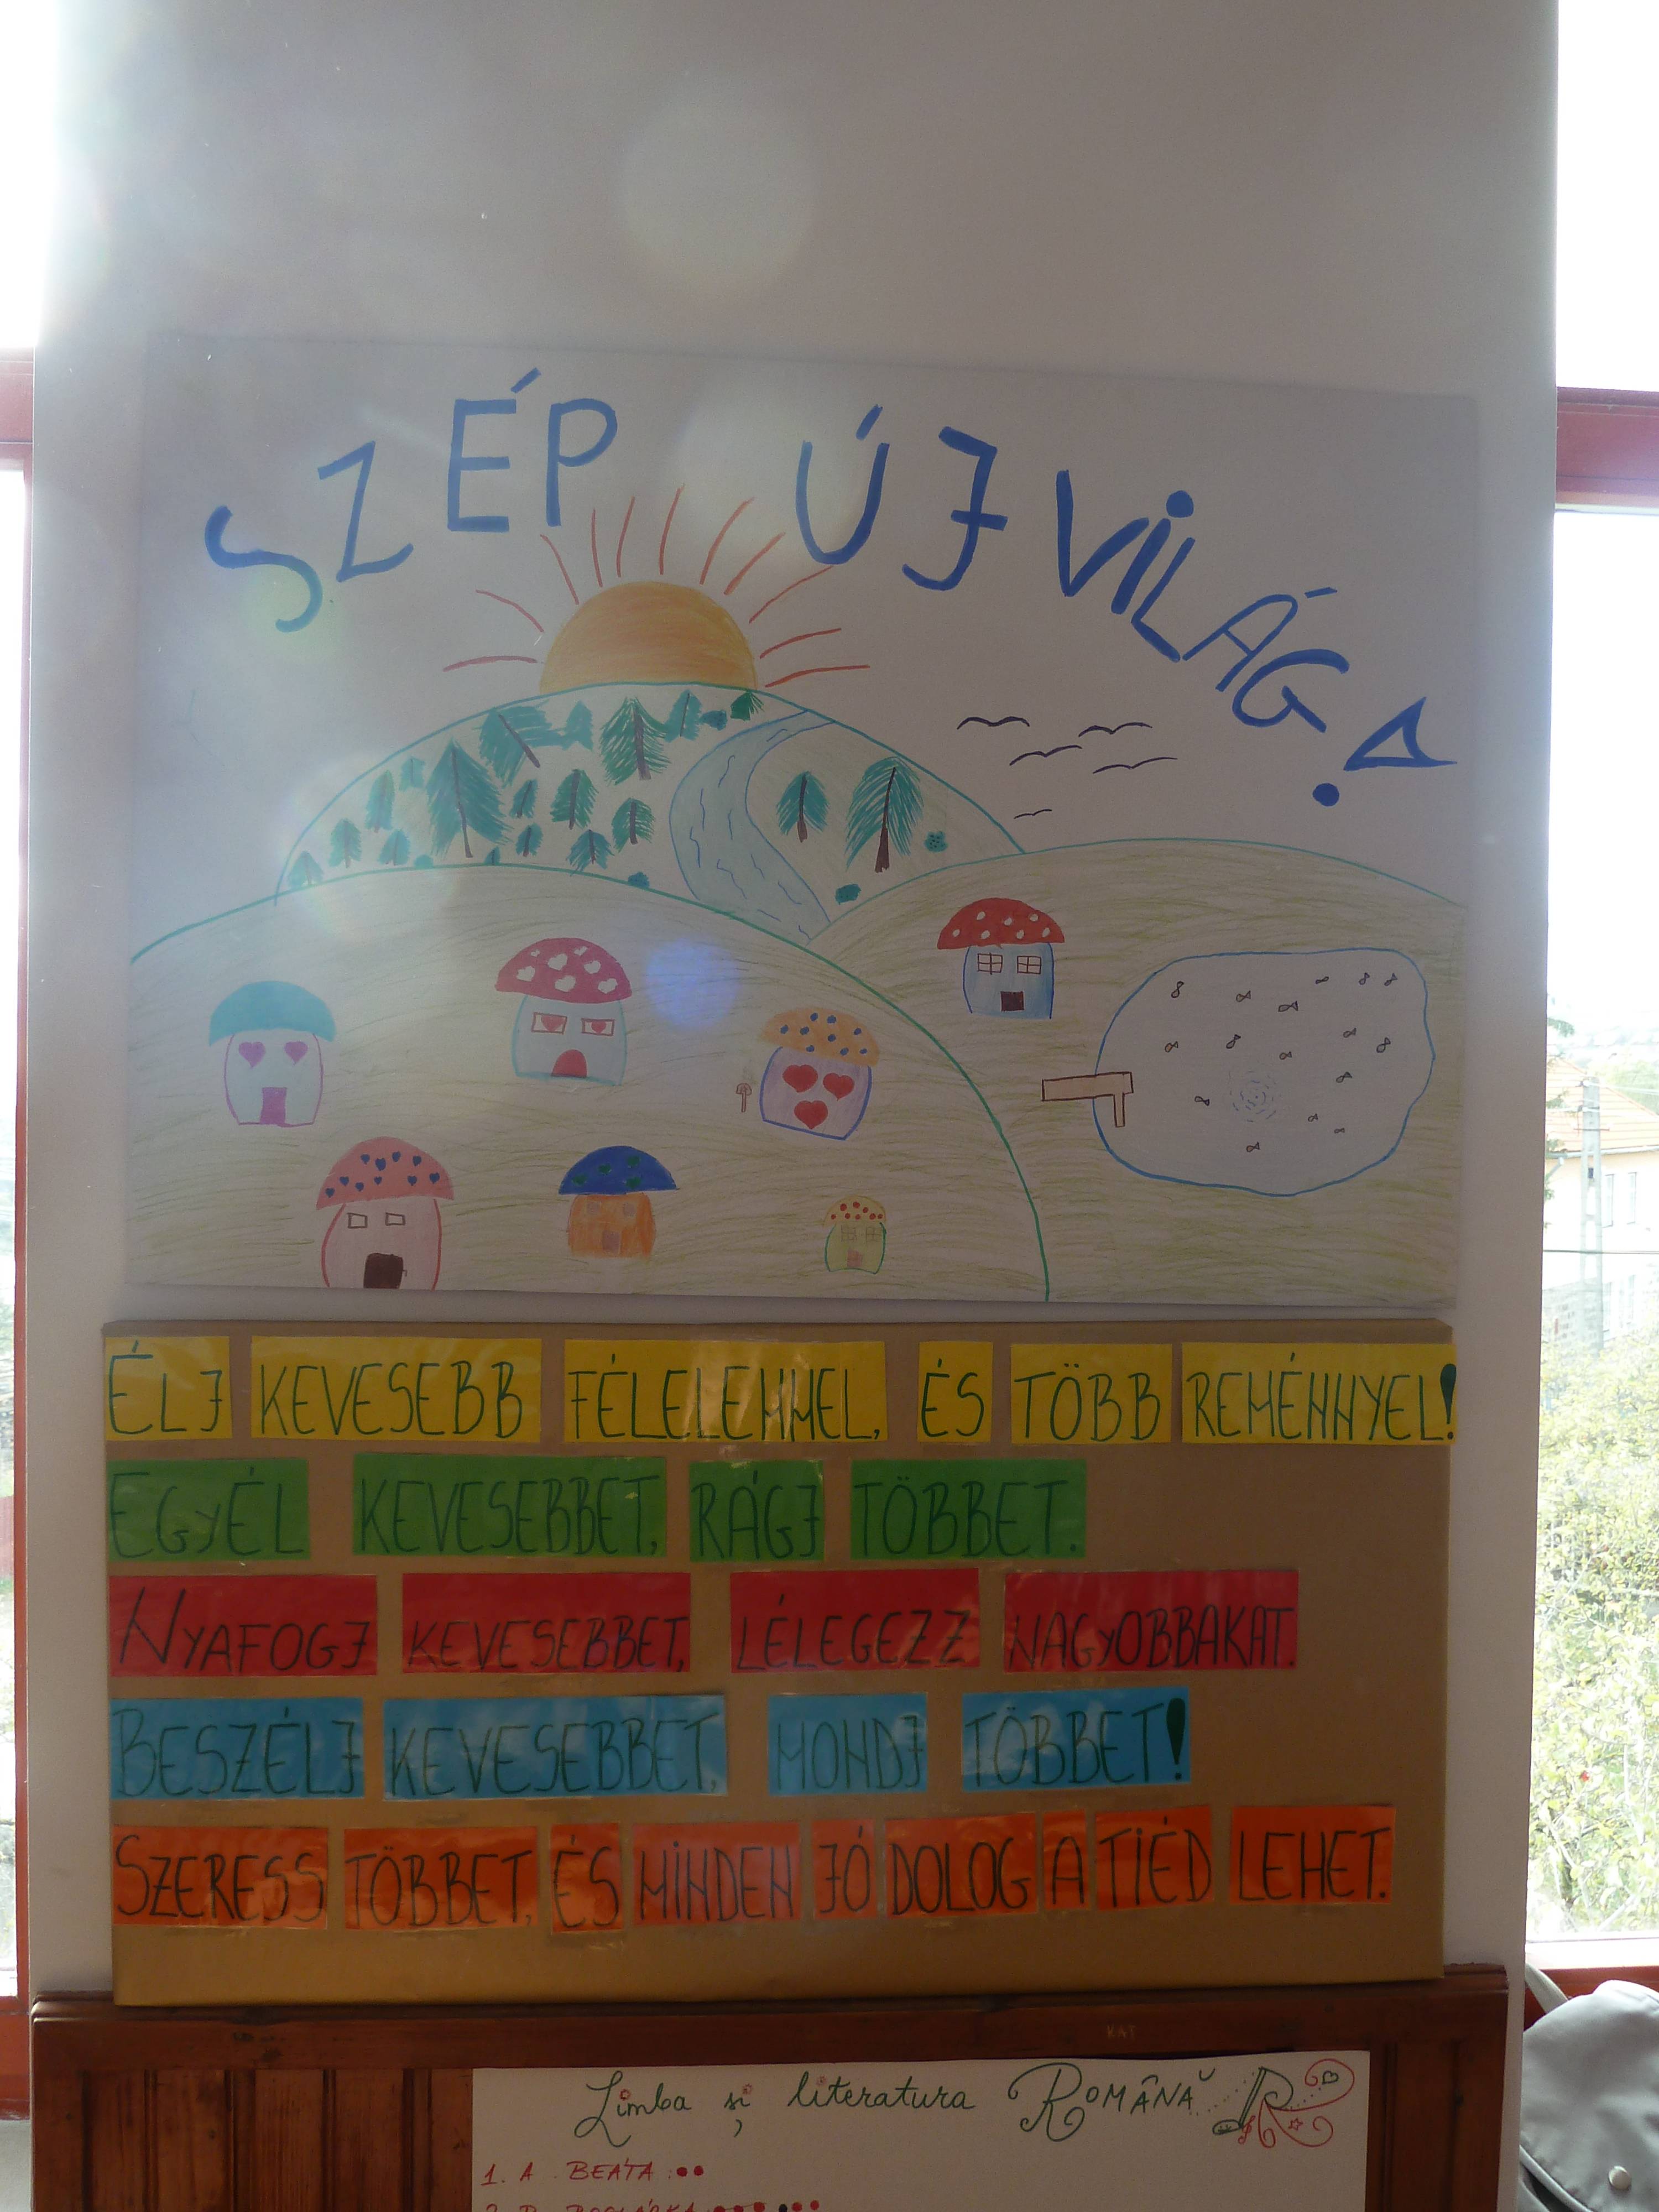 SZÉP ÚJ VILÁG!
ÉLJ KEVESEBB FÉLELEMMEL, ÉS TÖBB REMÉNNYEL!
EGYÉL KEVESEBBET, RÁGJ TÖBBET.
NYAFOGJ KEVESEBBET, LÉLEGEZZ NAGYOBBAKAT.
BESZÉLJ KEVESEBBET, MONDJ TÖBBET!
SZERESS TÖBBET, ÉS MINDEN JÓ DOLOG A TIÉD LEHET.
KAT
Limba și literatura ROMÂNĂ
1. A. BEÁTA: